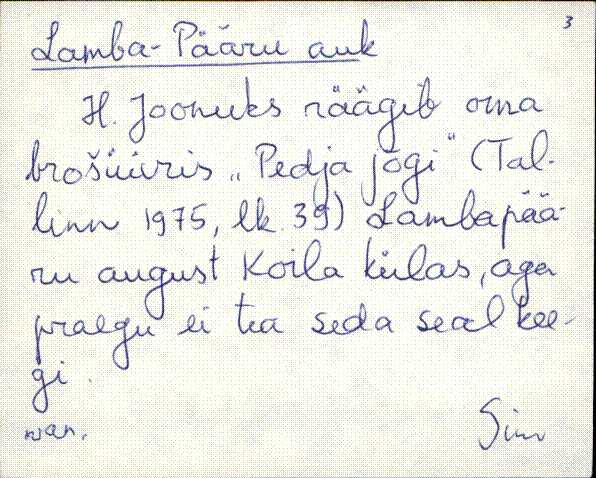 3
Lamba-Pääru auk
H. Joonuks räägib oma
brošüüris „Pedja jõgi" (Tal-
linn 1975, lk. 39) Lambapää-
ru august Koila külas, aga
praegu ei tea seda seal kee-
gi.
Sim